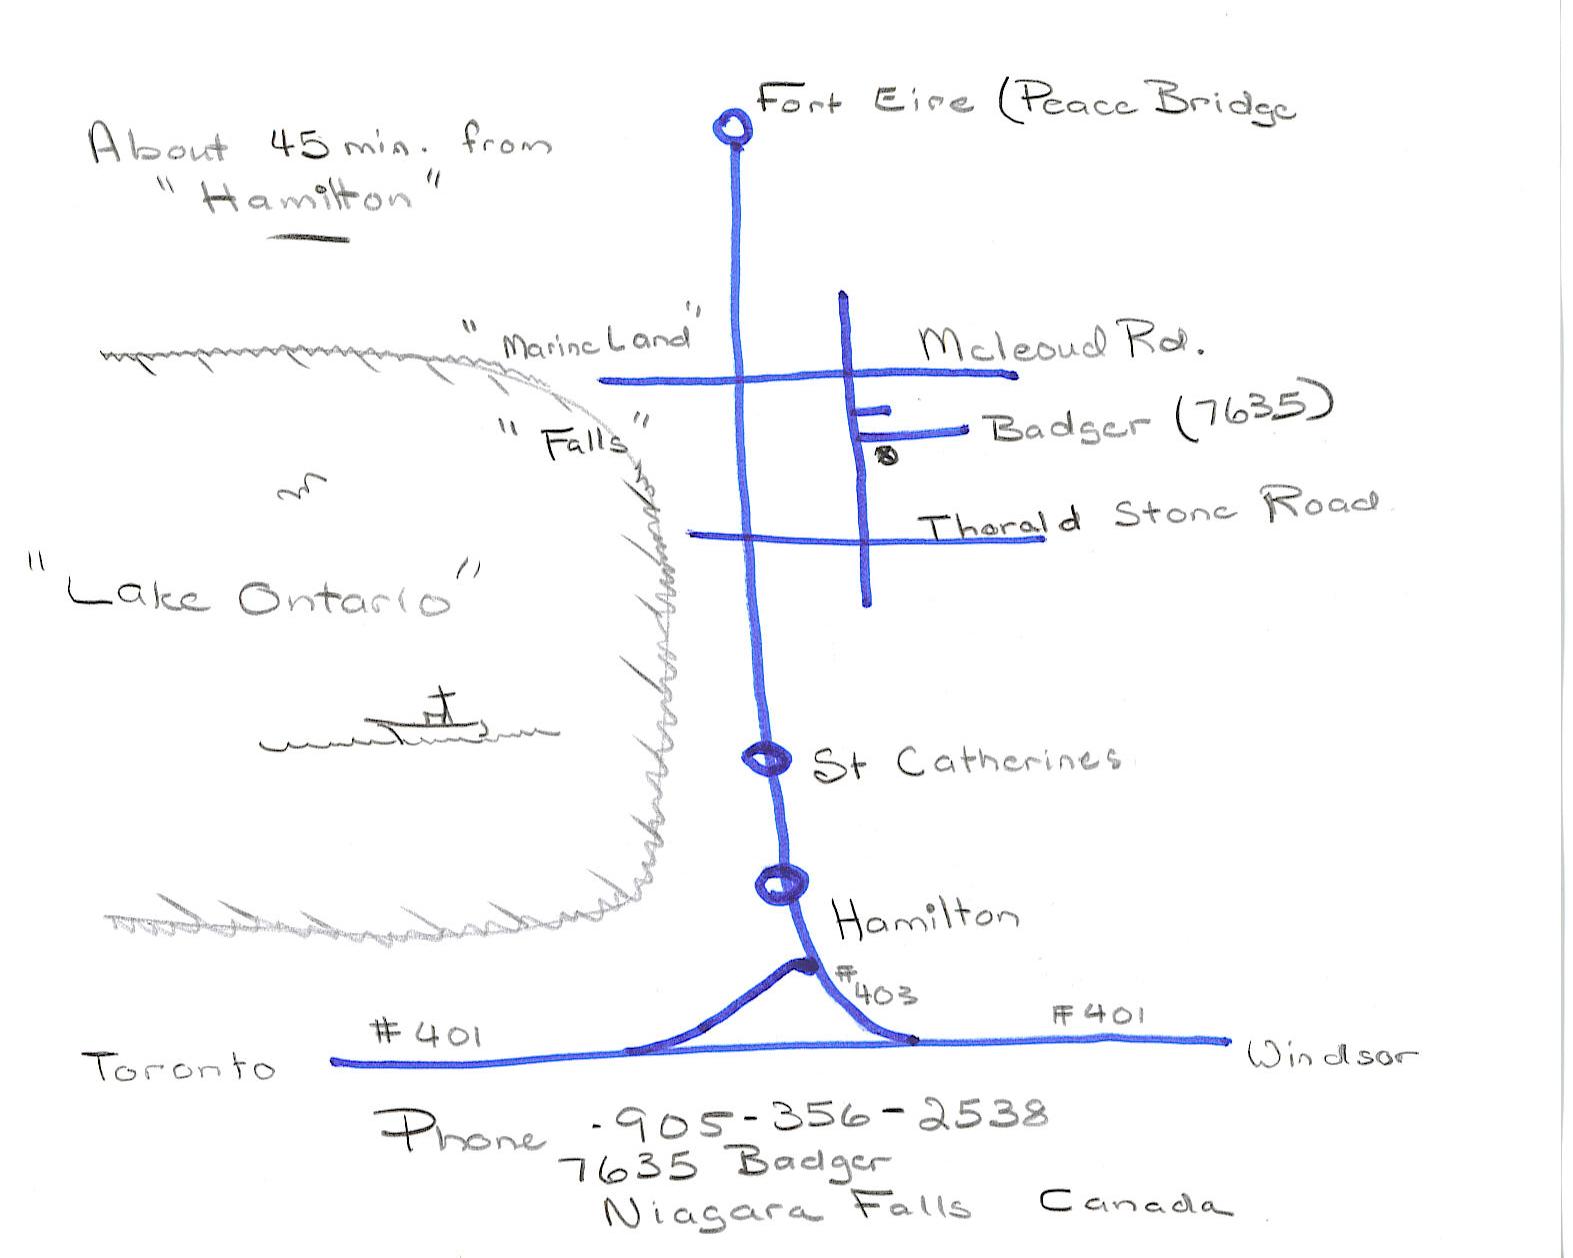 Fort Eire (Peace Bridge
About 45 min. from
"Hamilton"
"Marine Land"
Mcleoud Rd.
Badger (7635)
"Falls"
Thorald Stone Road
"Lake Ontario"
St Catherines
Hamilton
#403
#401
#401
Toronto
Windsor
Phone -905-356-2538
7635 Badger
Niagara Falls Canada